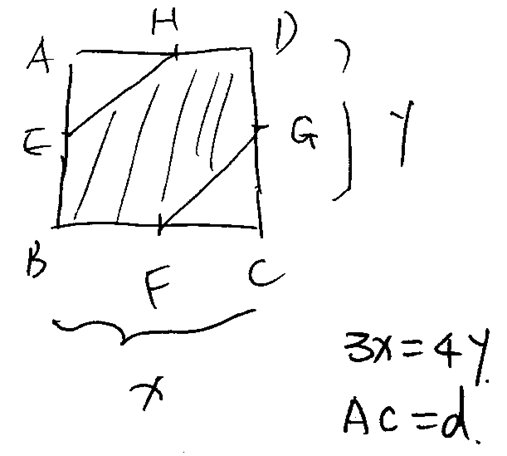 H
A
D
E
G
y
B
F
C
x
3x=4y.
AC=d.